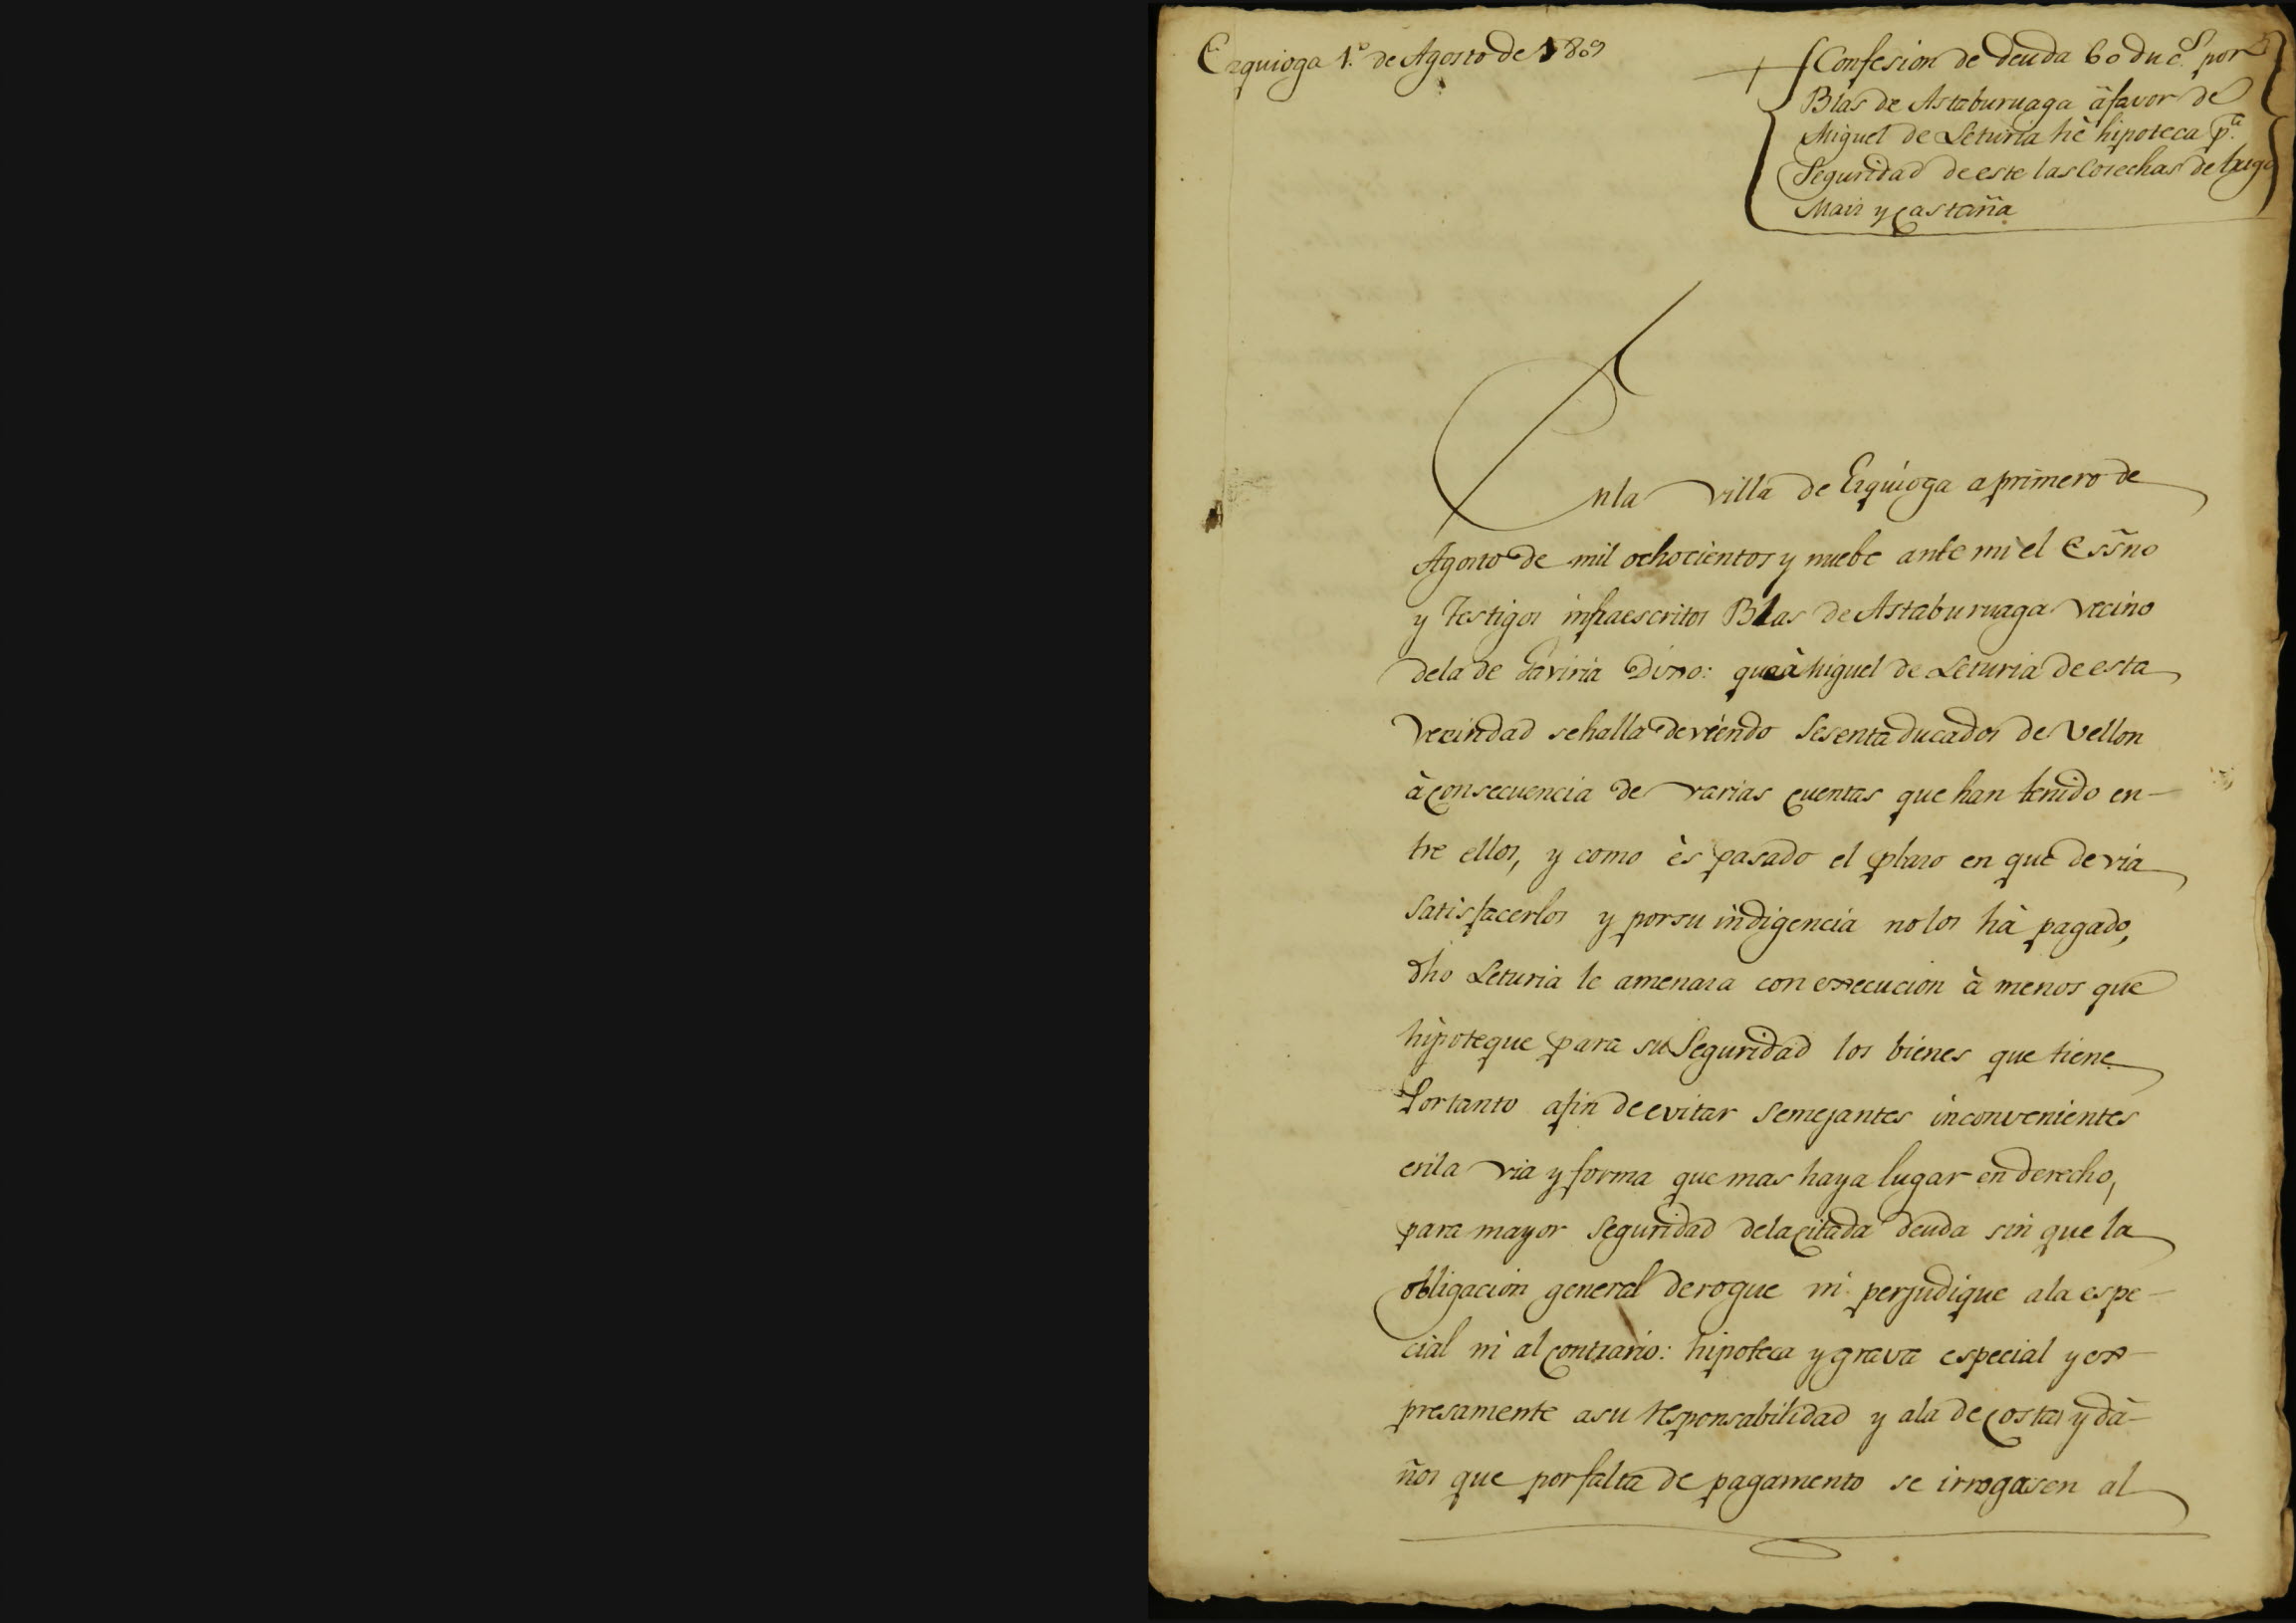 Ezquioga 1.º de Agosto de 1809
Confesion de deuda 60 duc.s por
Blas de Astaburuaga à favor de
Miguel de Leturia hè hipoteca p.a
Seguridad de este las Cosechas de trigo
Maiz y Castaña
Enla villa de Ezquioga a primero de
Agosto de mil ochocientos y nuebe ante mi el Essño
y Testigos infraescritos Blas de Astaburuaga vecino
dela de Gaviria Dixo: que à Miguel de Leturia de esta
Vecindad se halla deviendo Sesenta ducados de Vellon
à consecuencia de varias cuentas que han tenido en-
tre ellos, y como ès pasado el plazo en que devia
Satisfacerlos y por su indigencia no los hà pagado,
dho Leturia le amenaza con execucion à menos que
hipoteque para su Seguridad los bienes que tiene
Portanto afin de evitar Semejantes inconvenientes
enla via y forma que mas haya lugar en derecho,
para mayor Seguridad dela citada deuda sin que la
obligacion general derogue ni perjudique ala espe-
cial ni al contrario: hipoteca y grava especial y ex-
presamente asu responsabilidad y ala de costas y da-
ños que por falta de pagamento se irrogasen al